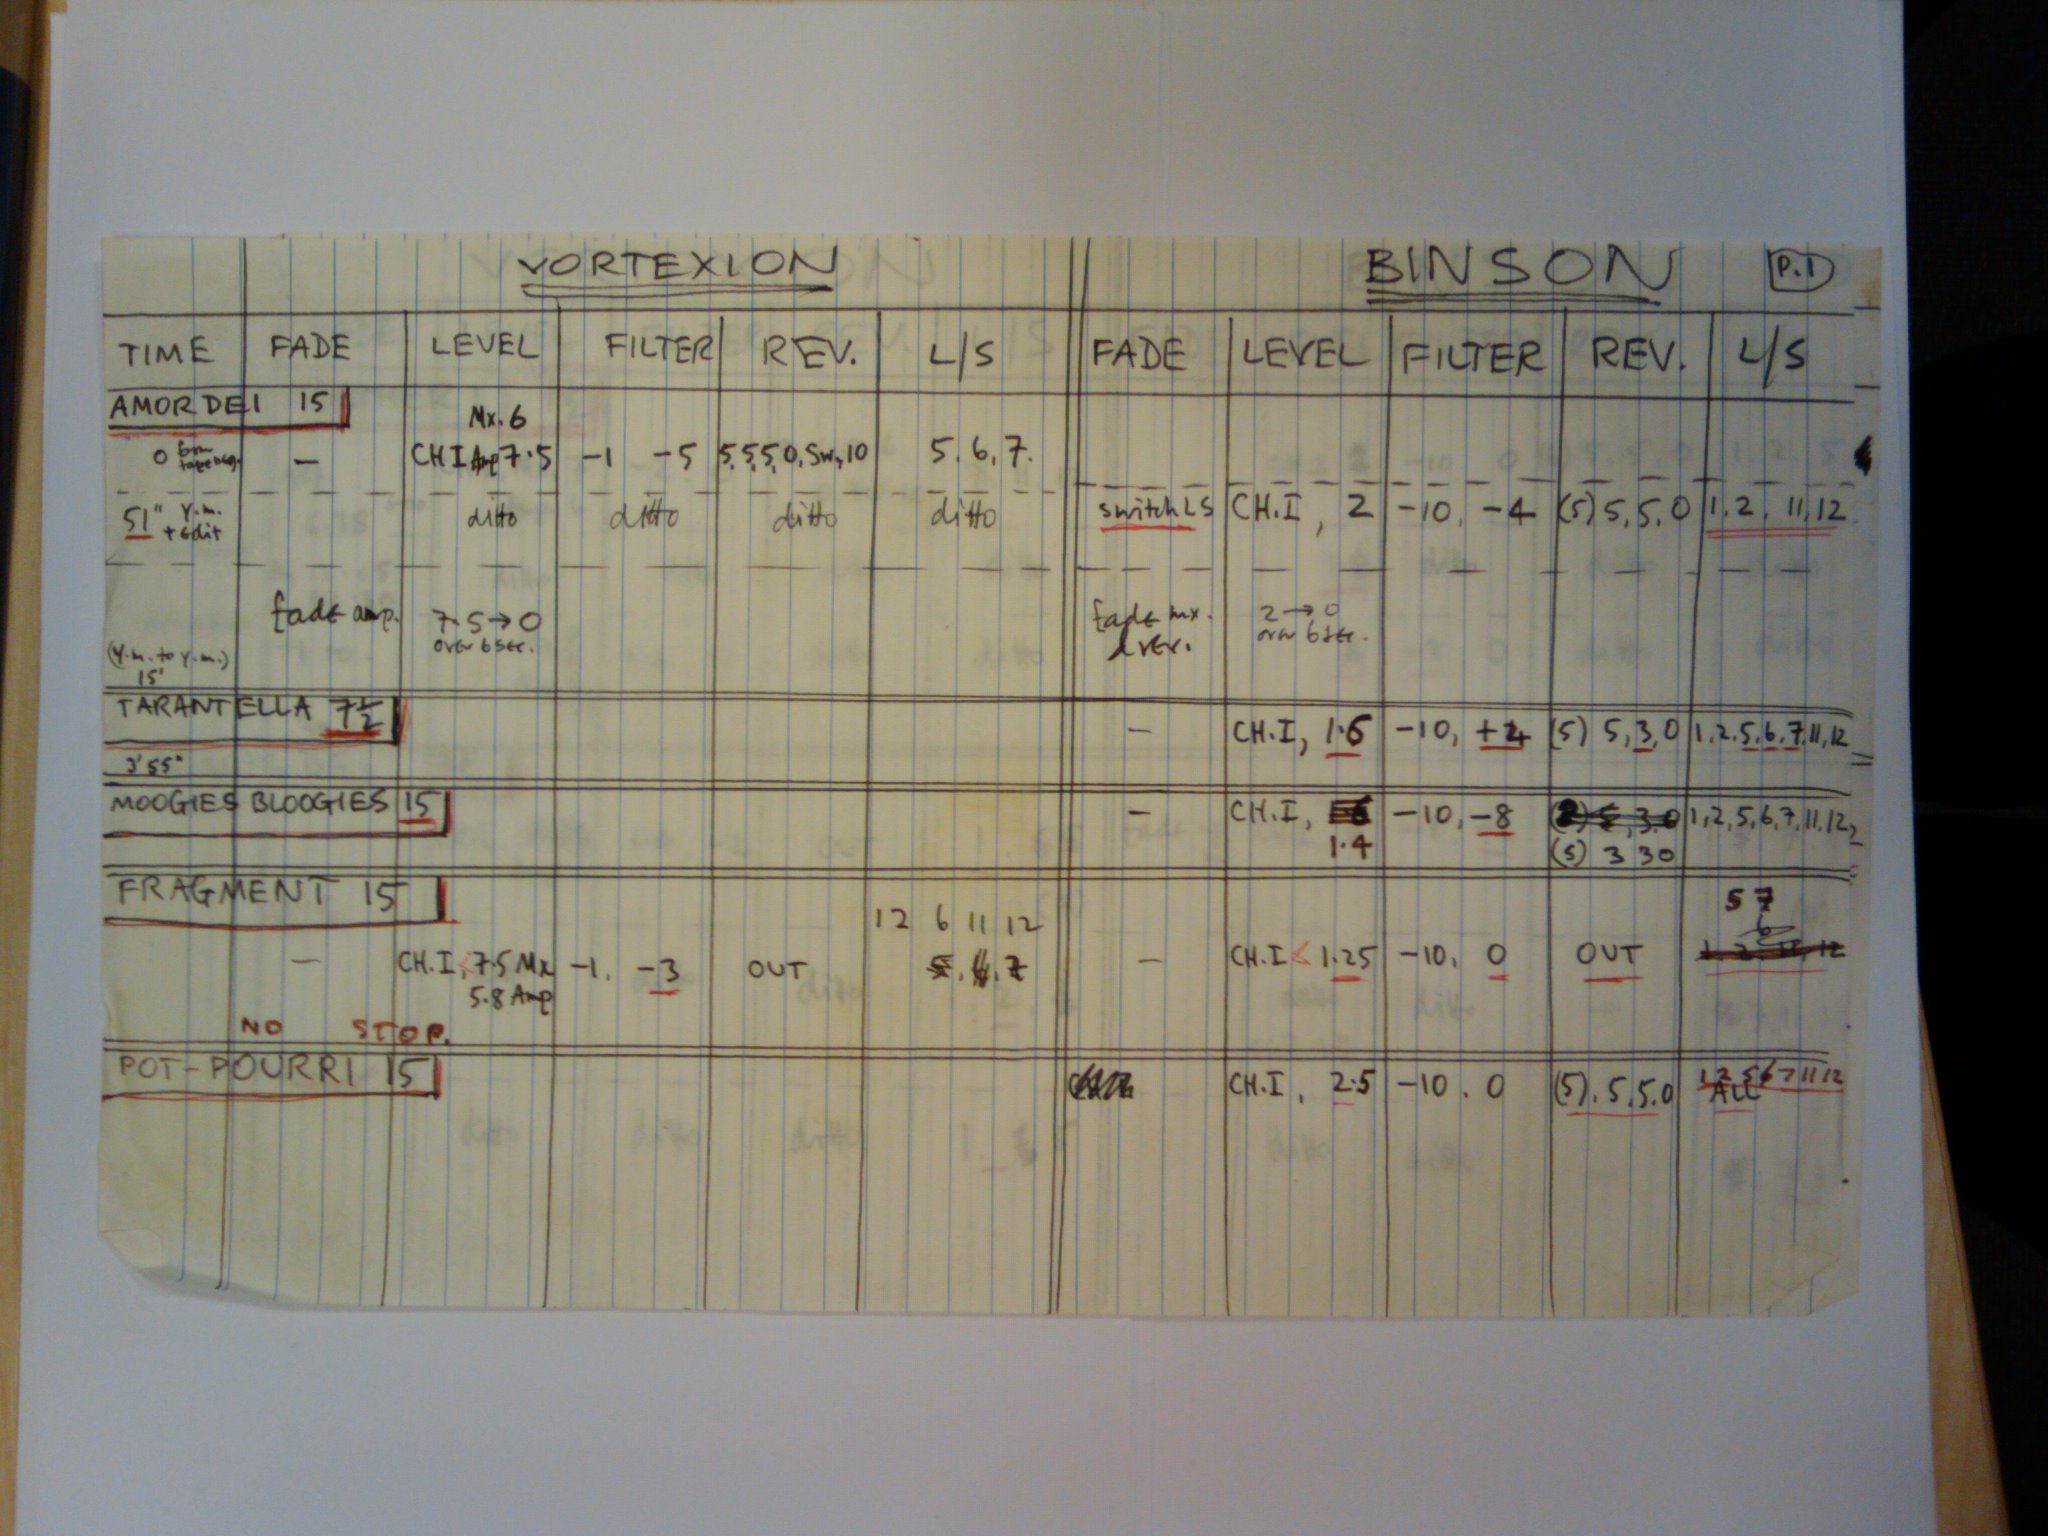 VORTEXION BINSON P.1
TIME FADE LEVEL FILTER REV. L/S FADE LEVEL FILTER REV. L/S
AMOR DEI 15
Mx. 6
0 from tape beg. — CH I Amp 7.5 -1 -5 5,5,5,0,Sw,10 5. 6, 7.
51" Y.m. + edit ditto ditto ditto ditto switch LS CH.I, 2 -10, -4 (5) 5,5,0 1,2, 11,12
fade amp. 7.5→0 fade mx. 2→0
over 6 sec. & rev. over 6 sec.
(Y.m. to Y.m.)
15'
TARANTELLA 7½ — CH.I, 1.6 -10, +2 (5) 5,3,0 1,2,5,6,7,11,12
3'55"
MOOGIES BLOOGIES 15 — CH.I, -10, -8 1,2,5,6,7,11,12
1.4 (5) 3 30
FRAGMENT 15 5 7
12 6 11 12 6
— CH.I, 7.5 Mx -1. -3 OUT 5, 6, 7 — CH.I < 1.25 -10, 0 OUT 1 2 11 12
5.8 Amp
NO STOP.
POT-POURRI 15 CH.I, 2.5 -10. 0 (5). 5,5.0 1 2 5 6 7 11 12
ALL